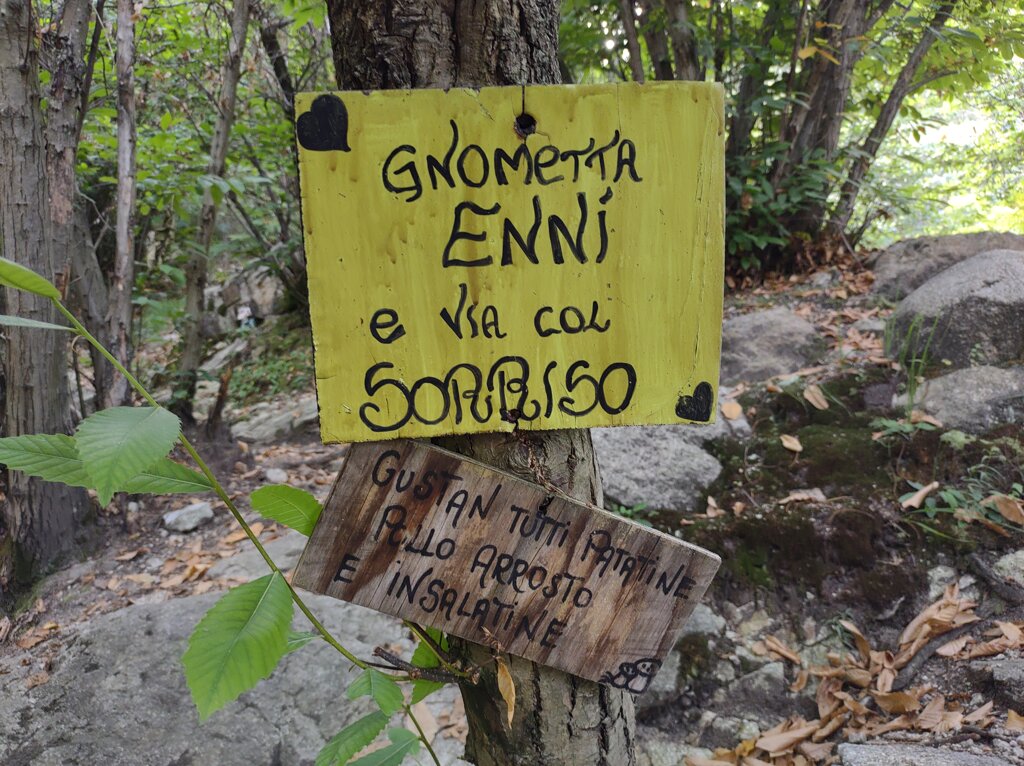 GNOMETTA
ENNi
e VIA COL
SORRISO
GUSTAN TUTTI PATATINE
POLLO ARROSTO
E INSALATINE